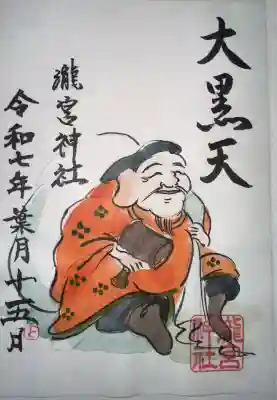 大黒天
瀧宮神社
令和七年葉月十五日
瀧宮
神社